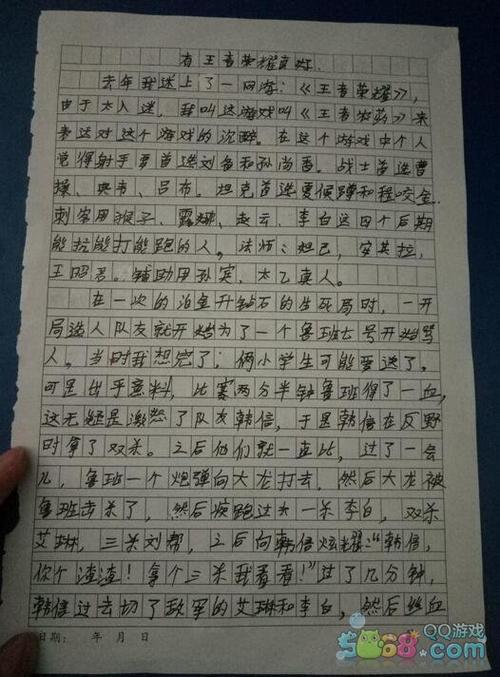 有王者荣耀真好
去年我迷上了一网游:《王者荣耀》,
由于太入迷,我叫这游戏叫《王者农药》来
表达对这个游戏的沉醉。在这个游戏中个人
觉得射手要首选刘备和孙尚香。战士首选曹
操、典韦、吕布。坦克首选夏侯惇和程咬金
刺客用猴子、露娜、赵云、李白这四个后期
能抗能打能跑的人,法师:妲己,安其拉,
王昭君。辅助用孙宾,太乙真人。
在一次的泊金升钻石的生死局时,一开
局选人队友就开始为了一个鲁班七号开始骂
人。当时我想完了;俩小学生可能要送了。
可是出乎意料,比赛两分半钟鲁班得了一血,
这无疑是激怒了队友韩信,于是韩信在反野
时拿了双杀。之后他们就一直比,过了一会
儿,鲁班一个炮弹向大龙打去,然后大龙被
鲁班击杀了,然后疾跑过去一杀李白,双杀
艾琳,三杀刘帮,之后向韩信炫耀:“韩信,
你个渣渣!拿个三杀我看看!”过了几分钟,
韩信过去切了敌军的艾琳和李白,然后丝血
日期: 年 月 日
QQ游戏
5068.com